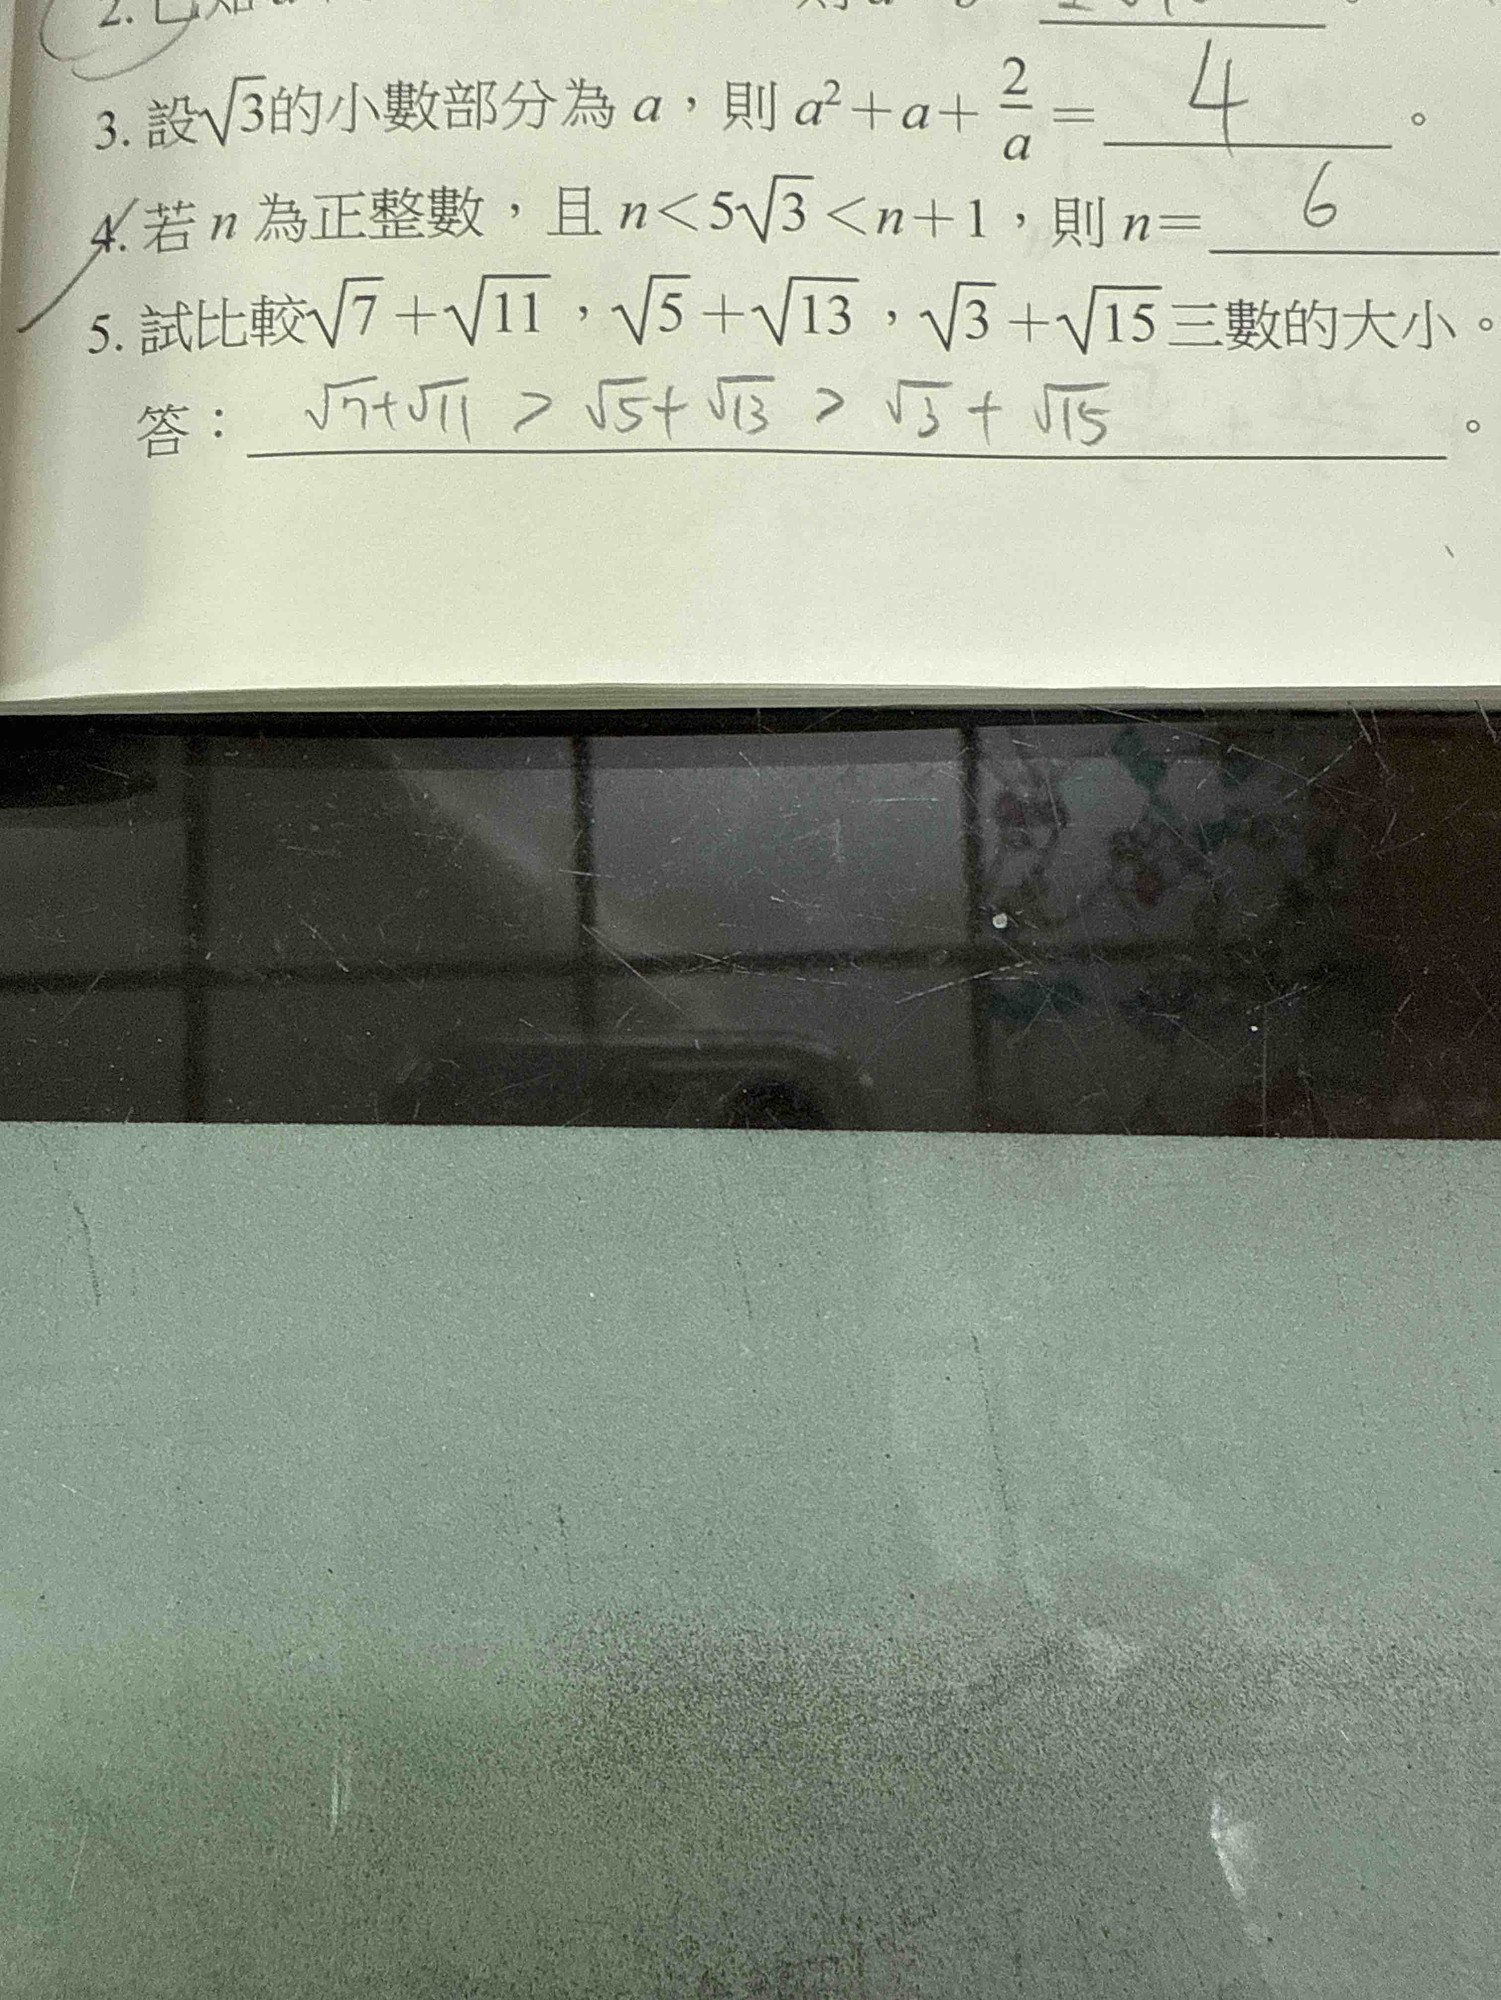 3. 設√3的小數部分為 a，則 a²+a+2/a=4。
4. 若 n 為正整數，且 n<5√3<n+1，則 n=6
5. 試比較√7+√11，√5+√13，√3+√15三數的大小。
答：√7+√11 > √5+√13 > √3+√15。